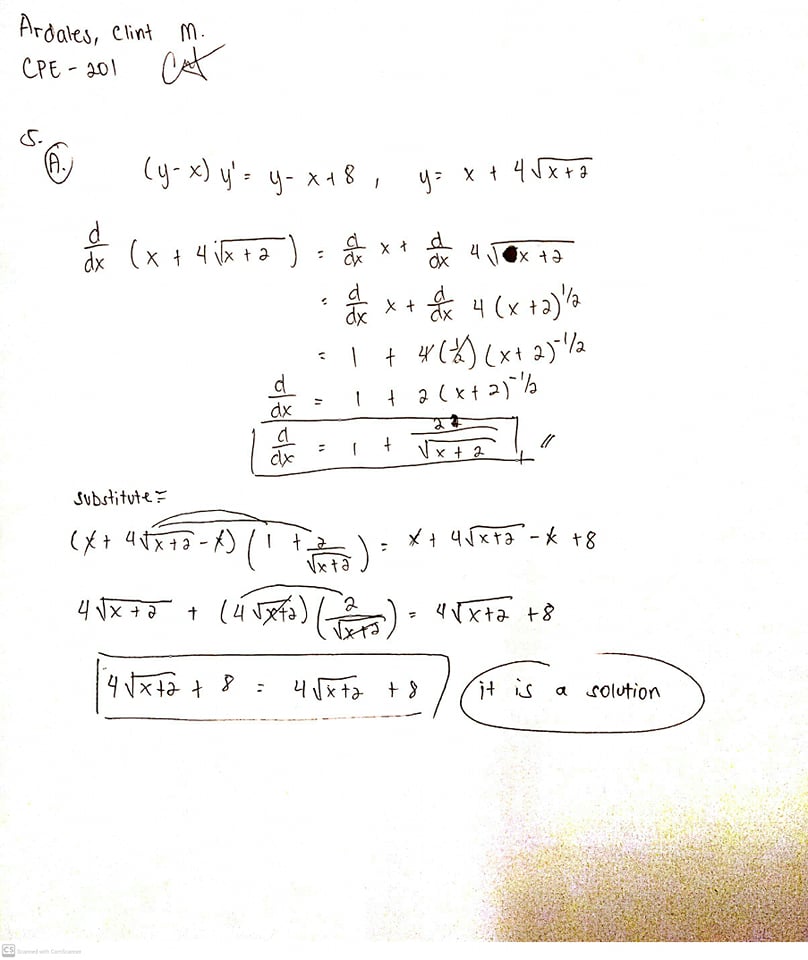 Ardales, Clint M.
CPE - 201
5.
A. (y-x) y' = y - x + 8 , y = x + 4√(x+2)
d/dx (x + 4√(x+2)) = d/dx x + d/dx 4√(x+2)
= d/dx x + d/dx 4 (x+2)^1/2
= 1 + 4(1/2)(x+2)^-1/2
d/dx = 1 + 2(x+2)^-1/2
d/dx = 1 + 2/√(x+2) //
substitute =
(x + 4√(x+2) - x) (1 + 2/√(x+2)) = x + 4√(x+2) - x + 8
4√(x+2) + (4√(x+2)) (2/√(x+2)) = 4√(x+2) + 8
4√(x+2) + 8 = 4√(x+2) + 8 it is a solution
CS Scanned with CamScanner